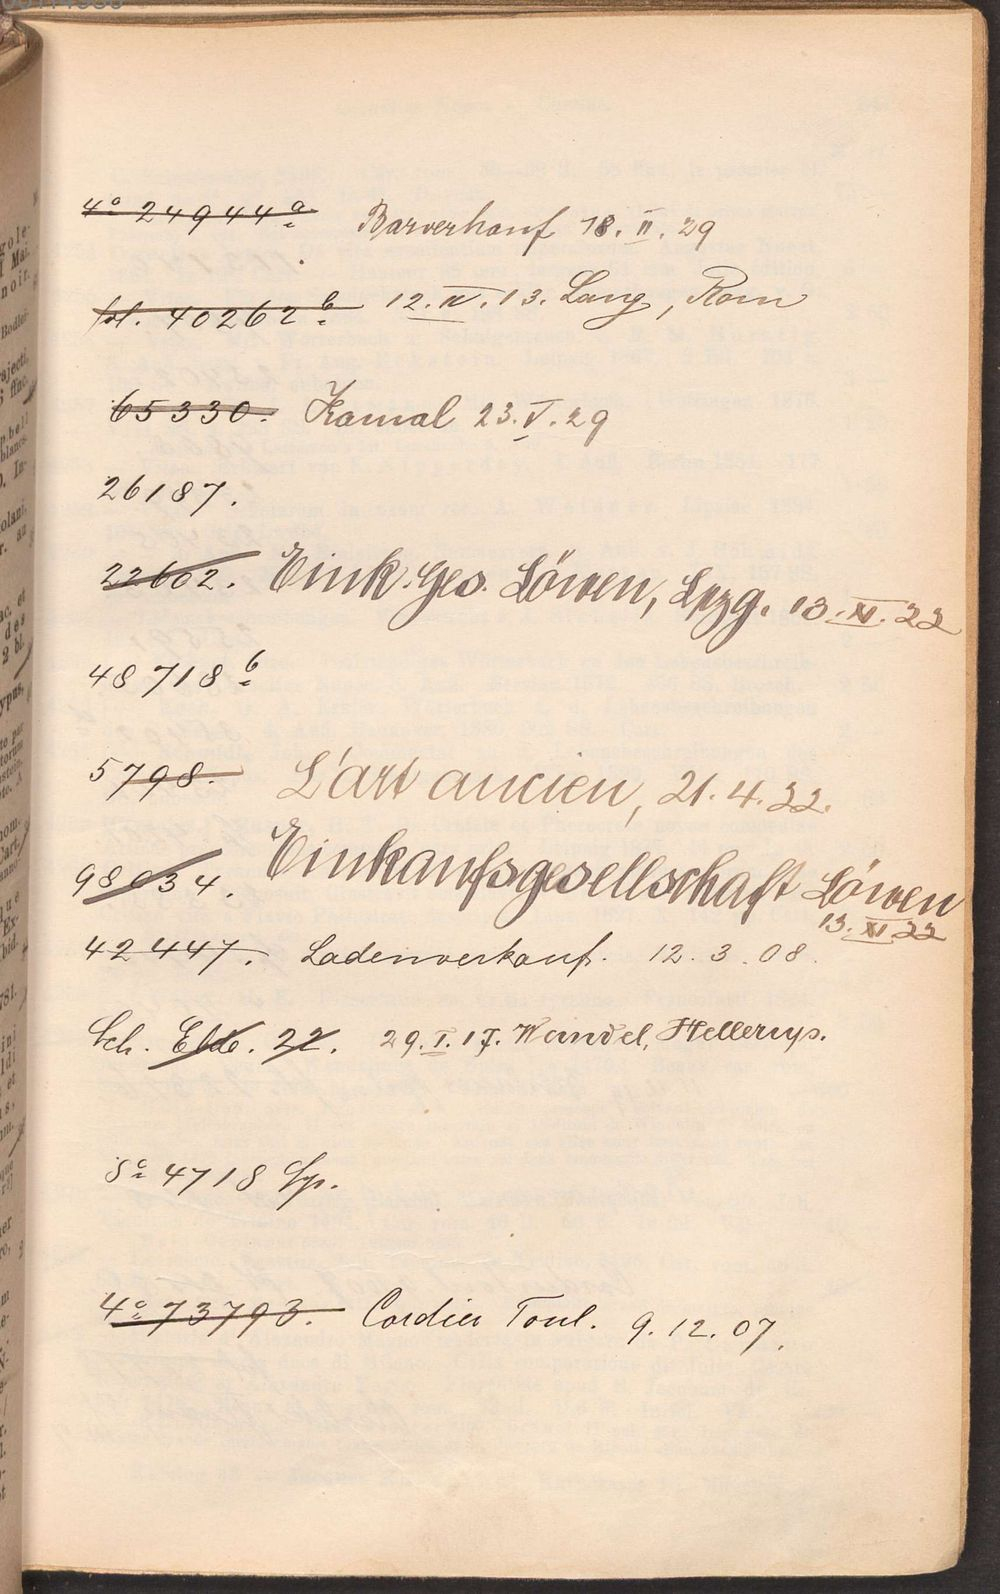 4° 24944a. Barverkauf 18. II. 29
fol. 40262b. 12. IV. 13. Lang, Rom
65330. Kamal 23. V. 29
26187.
22602. Eink. Ges. Löwen, Lpzg. 13. XI. 22
48718b
5798. L'art ancien, 21. 4. 22.
98034. Einkaufsgesellschaft Löwen
13. XI. 22
42447. Ladenverkauf. 12. 3. 08.
Sch. 22. 29. I. 17.
8° 4718
4° 73793. Cordier Toul. 9. 12. 07.